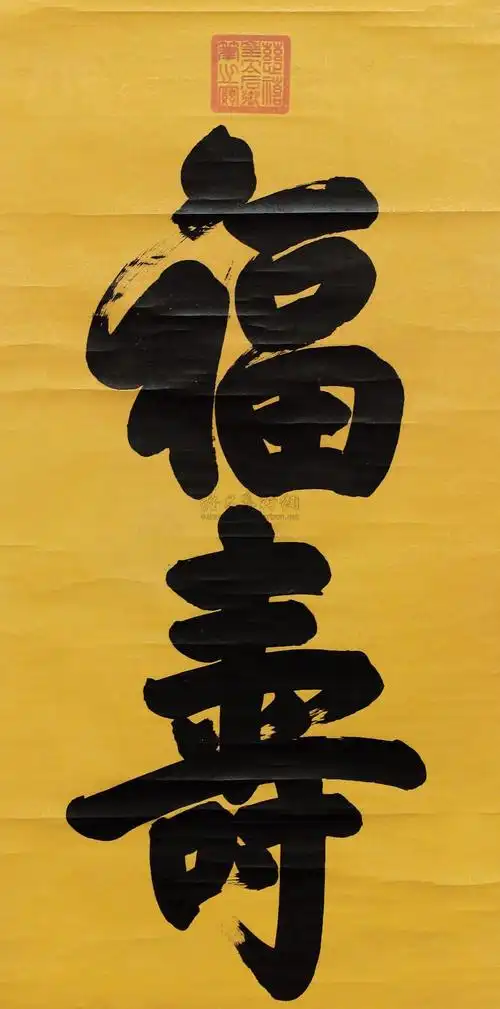 慈禧
皇太后御
筆之寶
福
壽